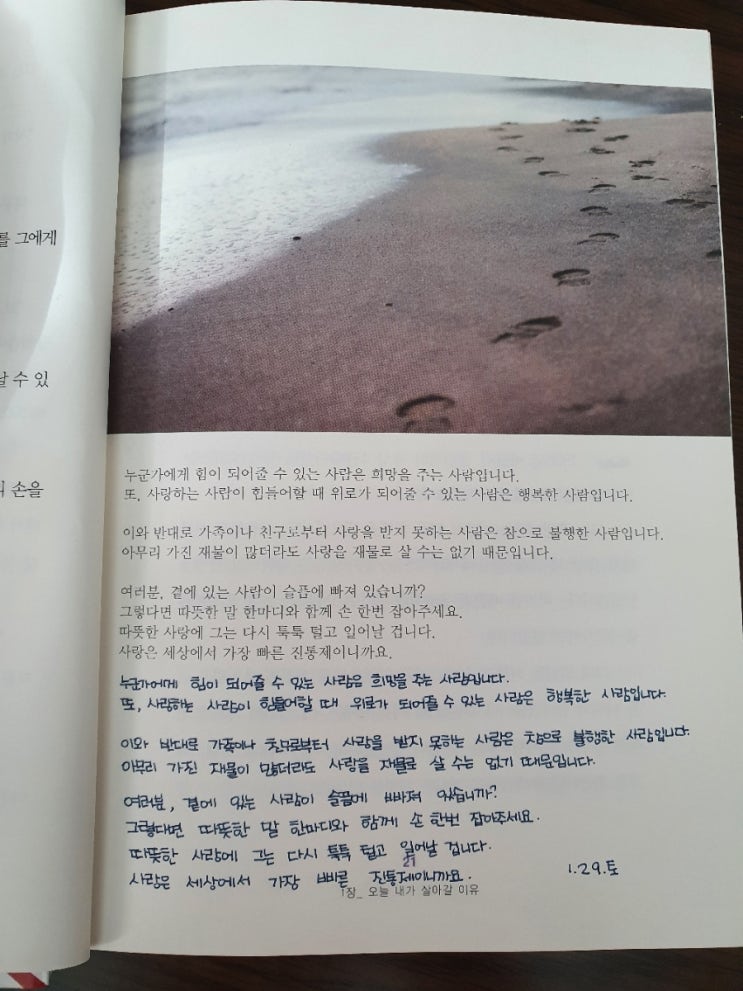 를 그에게
날 수 있
손을
누군가에게 힘이 되어줄 수 있는 사람은 희망을 주는 사람입니다.
또, 사랑하는 사람이 힘들어할 때 위로가 되어줄 수 있는 사람은 행복한 사람입니다.
이와 반대로 가족이나 친구로부터 사랑을 받지 못하는 사람은 참으로 불행한 사람입니다.
아무리 가진 재물이 많더라도 사랑을 재물로 살 수는 없기 때문입니다.
여러분, 곁에 있는 사람이 슬픔에 빠져 있습니까?
그렇다면 따뜻한 말 한마디와 함께 손 한번 잡아주세요.
따뜻한 사랑에 그는 다시 툭툭 털고 일어날 겁니다.
사랑은 세상에서 가장 빠른 진통제이니까요.
누군가에게 힘이 되어줄 수 있는 사람은 희망을 주는 사람입니다.
또, 사랑하는 사람이 힘들어할 때 위로가 되어줄 수 있는 사람은 행복한 사람입니다.
이와 반대로 가족이나 친구로부터 사랑을 받지 못하는 사람은 참으로 불행한 사람입니다.
아무리 가진 재물이 많더라도 사랑을 재물로 살 수는 없기 때문입니다.
여러분, 곁에 있는 사람이 슬픔에 빠져 있습니까?
그렇다면 따뜻한 말 한마디와 함께 손 한번 잡아주세요.
따뜻한 사랑에 그는 다시 툭툭 털고 일어날 겁니다.
21
사랑은 세상에서 가장 빠른 진통제이니까요.
1.29.토
1장_ 오늘 내가 살아갈 이유